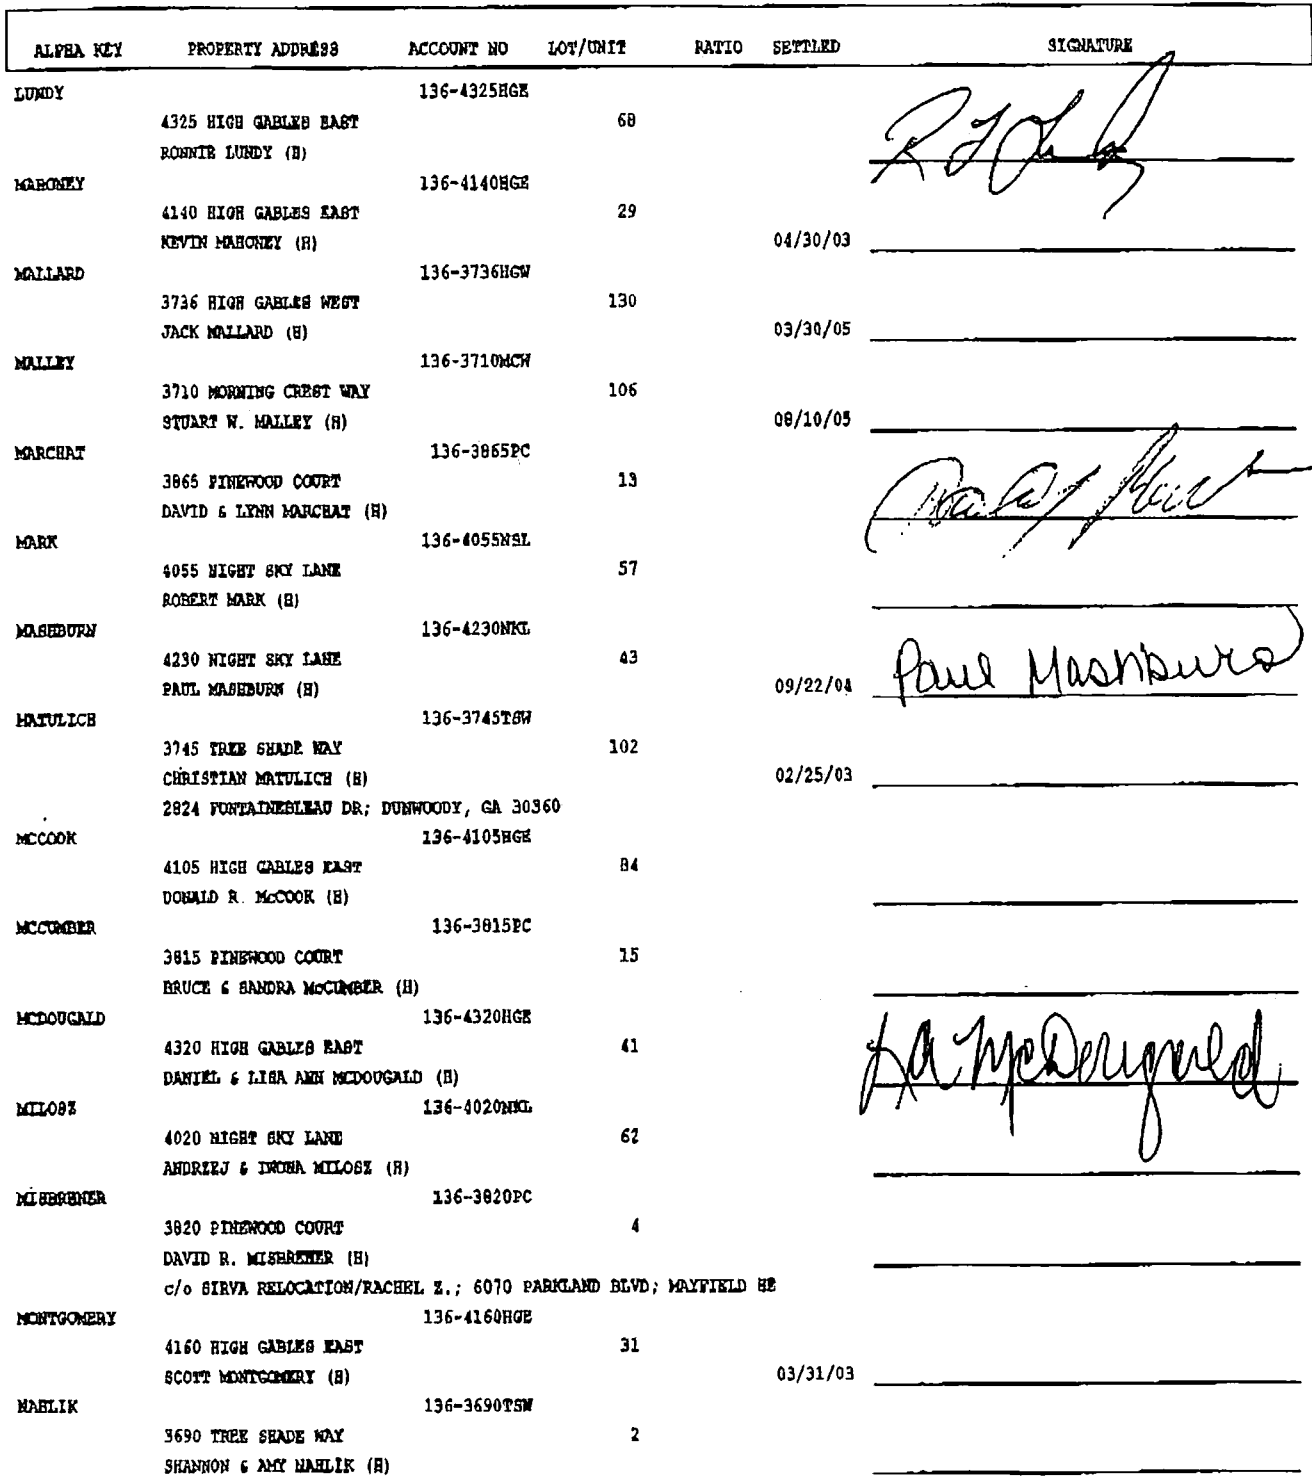 ALPHA KEY PROPERTY ADDRESS ACCOUNT NO LOT/UNIT RATIO SETTLED SIGNATURE
LUNDY 136-4325HGE
4325 HIGH GABLES EAST 68
RONNIE LUNDY (H)
MAHONEY 136-4140HGE
4140 HIGH GABLES EAST 29
KEVIN MAHONEY (H) 04/30/03
MALLARD 136-3736HGW
3736 HIGH GABLES WEST 130
JACK MALLARD (H) 03/30/05
MALLEY 136-3710MCW
3710 MORNING CREST WAY 106
STUART W. MALLEY (H) 08/10/05
MARCHAT 136-3865PC
3865 PINEWOOD COURT 13
DAVID & LYNN MARCHAT (H)
MARK 136-4055NSL
4055 NIGHT SKY LANE 57
ROBERT MARK (H)
MASHBURN 136-4230NKL
4230 NIGHT SKY LANE 43
PAUL MASHBURN (H) 09/22/04 Paul Mashburn
MATULICH 136-3745TSW
3745 TREE SHADE WAY 102
CHRISTIAN MATULICH (H) 02/25/03
2824 FONTAINEBLEAU DR; DUNWOODY, GA 30360
MCCOOK 136-4105HGE
4105 HIGH GABLES EAST 84
DONALD R. McCOOK (H)
MCCUMBER 136-3815PC
3815 PINEWOOD COURT 15
BRUCE & SANDRA McCUMBER (H)
MCDOUGALD 136-4320HGE
4320 HIGH GABLES EAST 41
DANIEL & LISA ANN MCDOUGALD (H) LA McDougald
MILOSZ 136-4020NKL
4020 NIGHT SKY LANE 62
ANDRZEJ & IWONA MILOSZ (H)
MISBRENER 136-3820PC
3820 PINEWOOD COURT 4
DAVID R. MISBRENER (H)
c/o SIRVA RELOCATION/RACHEL Z.; 6070 PARKLAND BLVD; MAYFIELD HE
MONTGOMERY 136-4160HGE
4160 HIGH GABLES EAST 31
SCOTT MONTGOMERY (H) 03/31/03
NAHLIK 136-3690TSW
3690 TREE SHADE WAY 2
SHANNON & AMY NAHLIK (H)